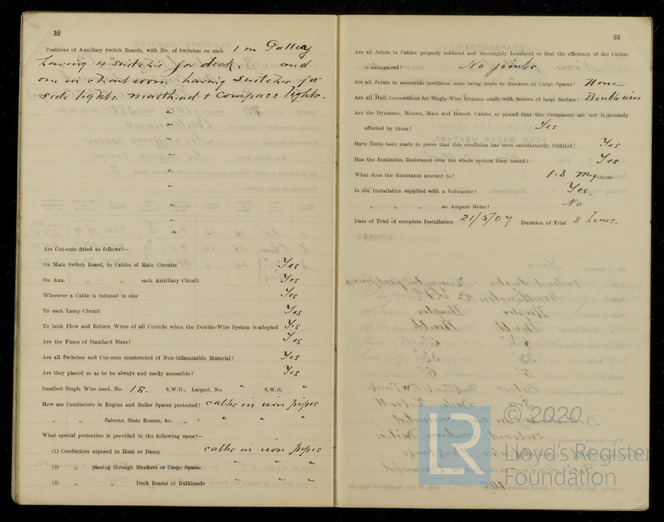 32
Positions of Auxiliary Switch Boards, with No. of Switches on each 1 in Galley
having 4 switches for deck, and
one in chart room having switches for
side lights, masthead & compass lights.
"
"
"
"
"
"
"
"
Are Cut-outs fitted as follows?—
On Main Switch Board, to Cables of Main Circuits Yes
On Aux. " " each Auxiliary Circuit Yes
Wherever a Cable is reduced in size Yes
To each Lamp Circuit Yes
To both Flow and Return Wires of all Circuits when the Double-Wire System is adopted Yes
Are the Fuses of Standard Sizes? Yes
Are all Switches and Cut-outs constructed of Non-inflammable Material? Yes
Are they placed so as to be always and easily accessible? Yes
Smallest Single Wire used, No. 18. S.W.G., Largest, No. " S.W.G. "
How are Conductors in Engine and Boiler Spaces protected? cables in iron pipes
" " Saloons, State Rooms, &c., " ? " " "
What special protection is provided in the following cases?—
(1) Conductors exposed to Heat or Damp cables in iron pipes
(2) " passing through Bunkers or Cargo Spaces " " "
(3) " " Deck Beams or Bulkheads " " "
33
Are all Joints in Cables properly soldered and thoroughly insulated so that the efficiency of the Cables
is unimpaired? No joints
Are all Joints in accessible positions, none being made in Bunkers or Cargo Spaces? None
Are all Hull Connections for Single-Wire Systems made with Screws of large Surface? Double wire
Are the Dynamos, Motors, Main and Branch Cables so placed that the Compasses are not injuriously
affected by them? Yes
Have Tests been made to prove that this condition has been satisfactorily fulfilled? Yes
Has the Insulation Resistance over the whole system been tested? Yes
What does the Resistance amount to? 1·8 meg Ohms
Is the Installation supplied with a Voltmeter? Yes.
" " " an Ampere Meter? No
Date of Trial of complete Installation 21/3/07 Duration of Trial 3 hours.
© 2020
LR
Lloyd's Register
Foundation